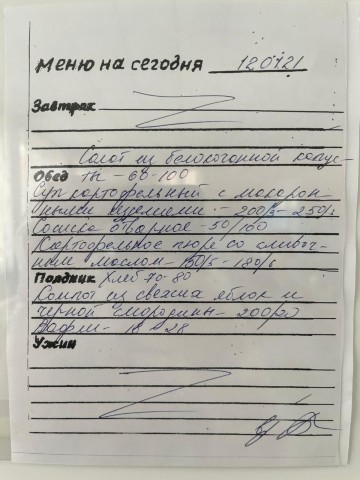 Меню на сегодня 120121
Завтрак
Салат из белокочанной капус-
Обед ты - 60-100
Суп картофельный с макарон
ными изделиями - 200/5 - 250/5
Сосиска отварное - 50/100
Картофельное пюре со сливоч-
ным маслом - 150/5 - 180/6
Полдник Хлеб 70-80
Компот из свежих яблок и
черной смородины - 200/20
Вафли - 18 - 28
Ужин